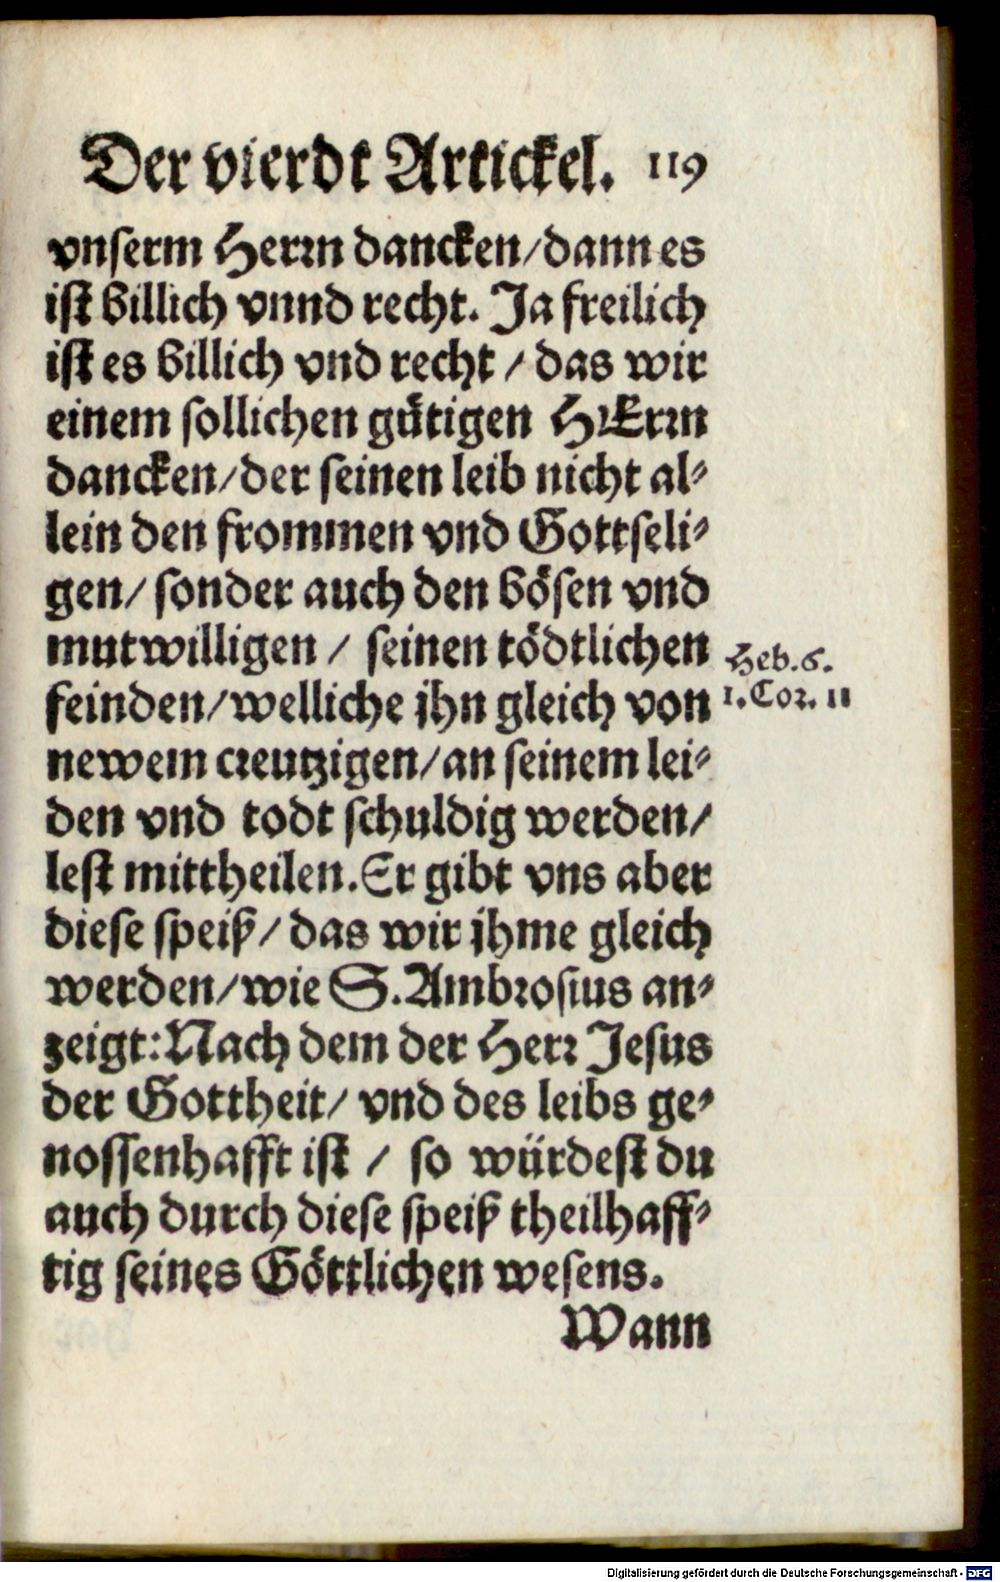 Der vierdt Artickel. 119
vnserm Herrn dancken/dann es
ist billich vnnd recht. Ja freilich
ist es billich vnd recht / das wir
einem sollichen gütigen HErrn
dancken/der seinen leib nicht al-
lein den frommen vnd Gottseli-
gen/ sonder auch den bösen vnd
mutwilligen / seinen tödtlichen
feinden/welliche jhn gleich von
newem creutzigen/an seinem lei-
den vnd todt schuldig werden/
lest mittheilen. Er gibt vns aber
diese speiß/ das wir jhme gleich
werden/wie S. Ambrosius an-
zeigt: Nach dem der Herr Jesus
der Gottheit/ vnd des leibs ge-
nossenhafft ist / so würdest du
auch durch diese speiß theilhaff-
tig seines Göttlichen wesens.
Wann
Heb. 6.
1. Cor. 11
Digitalisierung gefördert durch die Deutsche Forschungsgemeinschaft - DFG